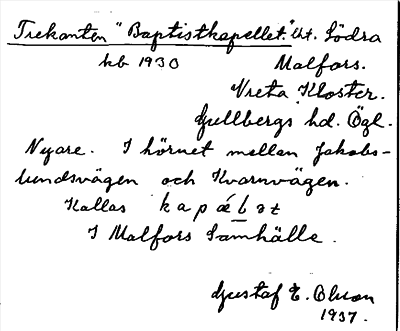 Trekanten "Baptistkapellet." Ut. Södra
kb 1930 Malfors.
Vreta Kloster.
Gullbergs hd. Ögl.
Nyare. I hörnet mellan Jakobs-
lundsvägen och Kvarnvägen.
Kallas kapǽlət
I Malfors Samhälle.
Gustaf E. Olsson
1937.